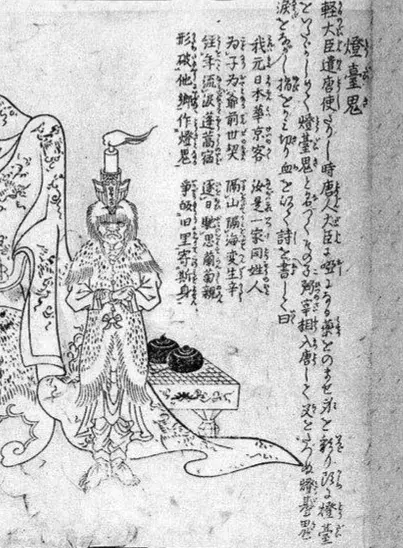 燈臺鬼
軽大臣遣唐使たりし時唐人大臣に唖になる薬をのませ身を彩り頭に燈臺
をいたゞかしめて燈臺鬼となづくその子弼宰相入唐して父をたづぬ燈臺鬼
涙をながし指をかみ切り血を以て詩を書して曰
我元日本華京客　汝是一家同姓人
為子為爺前世契　隔山隔海変生辛
経年流涙蓬蒿宿　逐日馳思蘭菊親
形破他郷作燈鬼　争皈旧里寄斯身